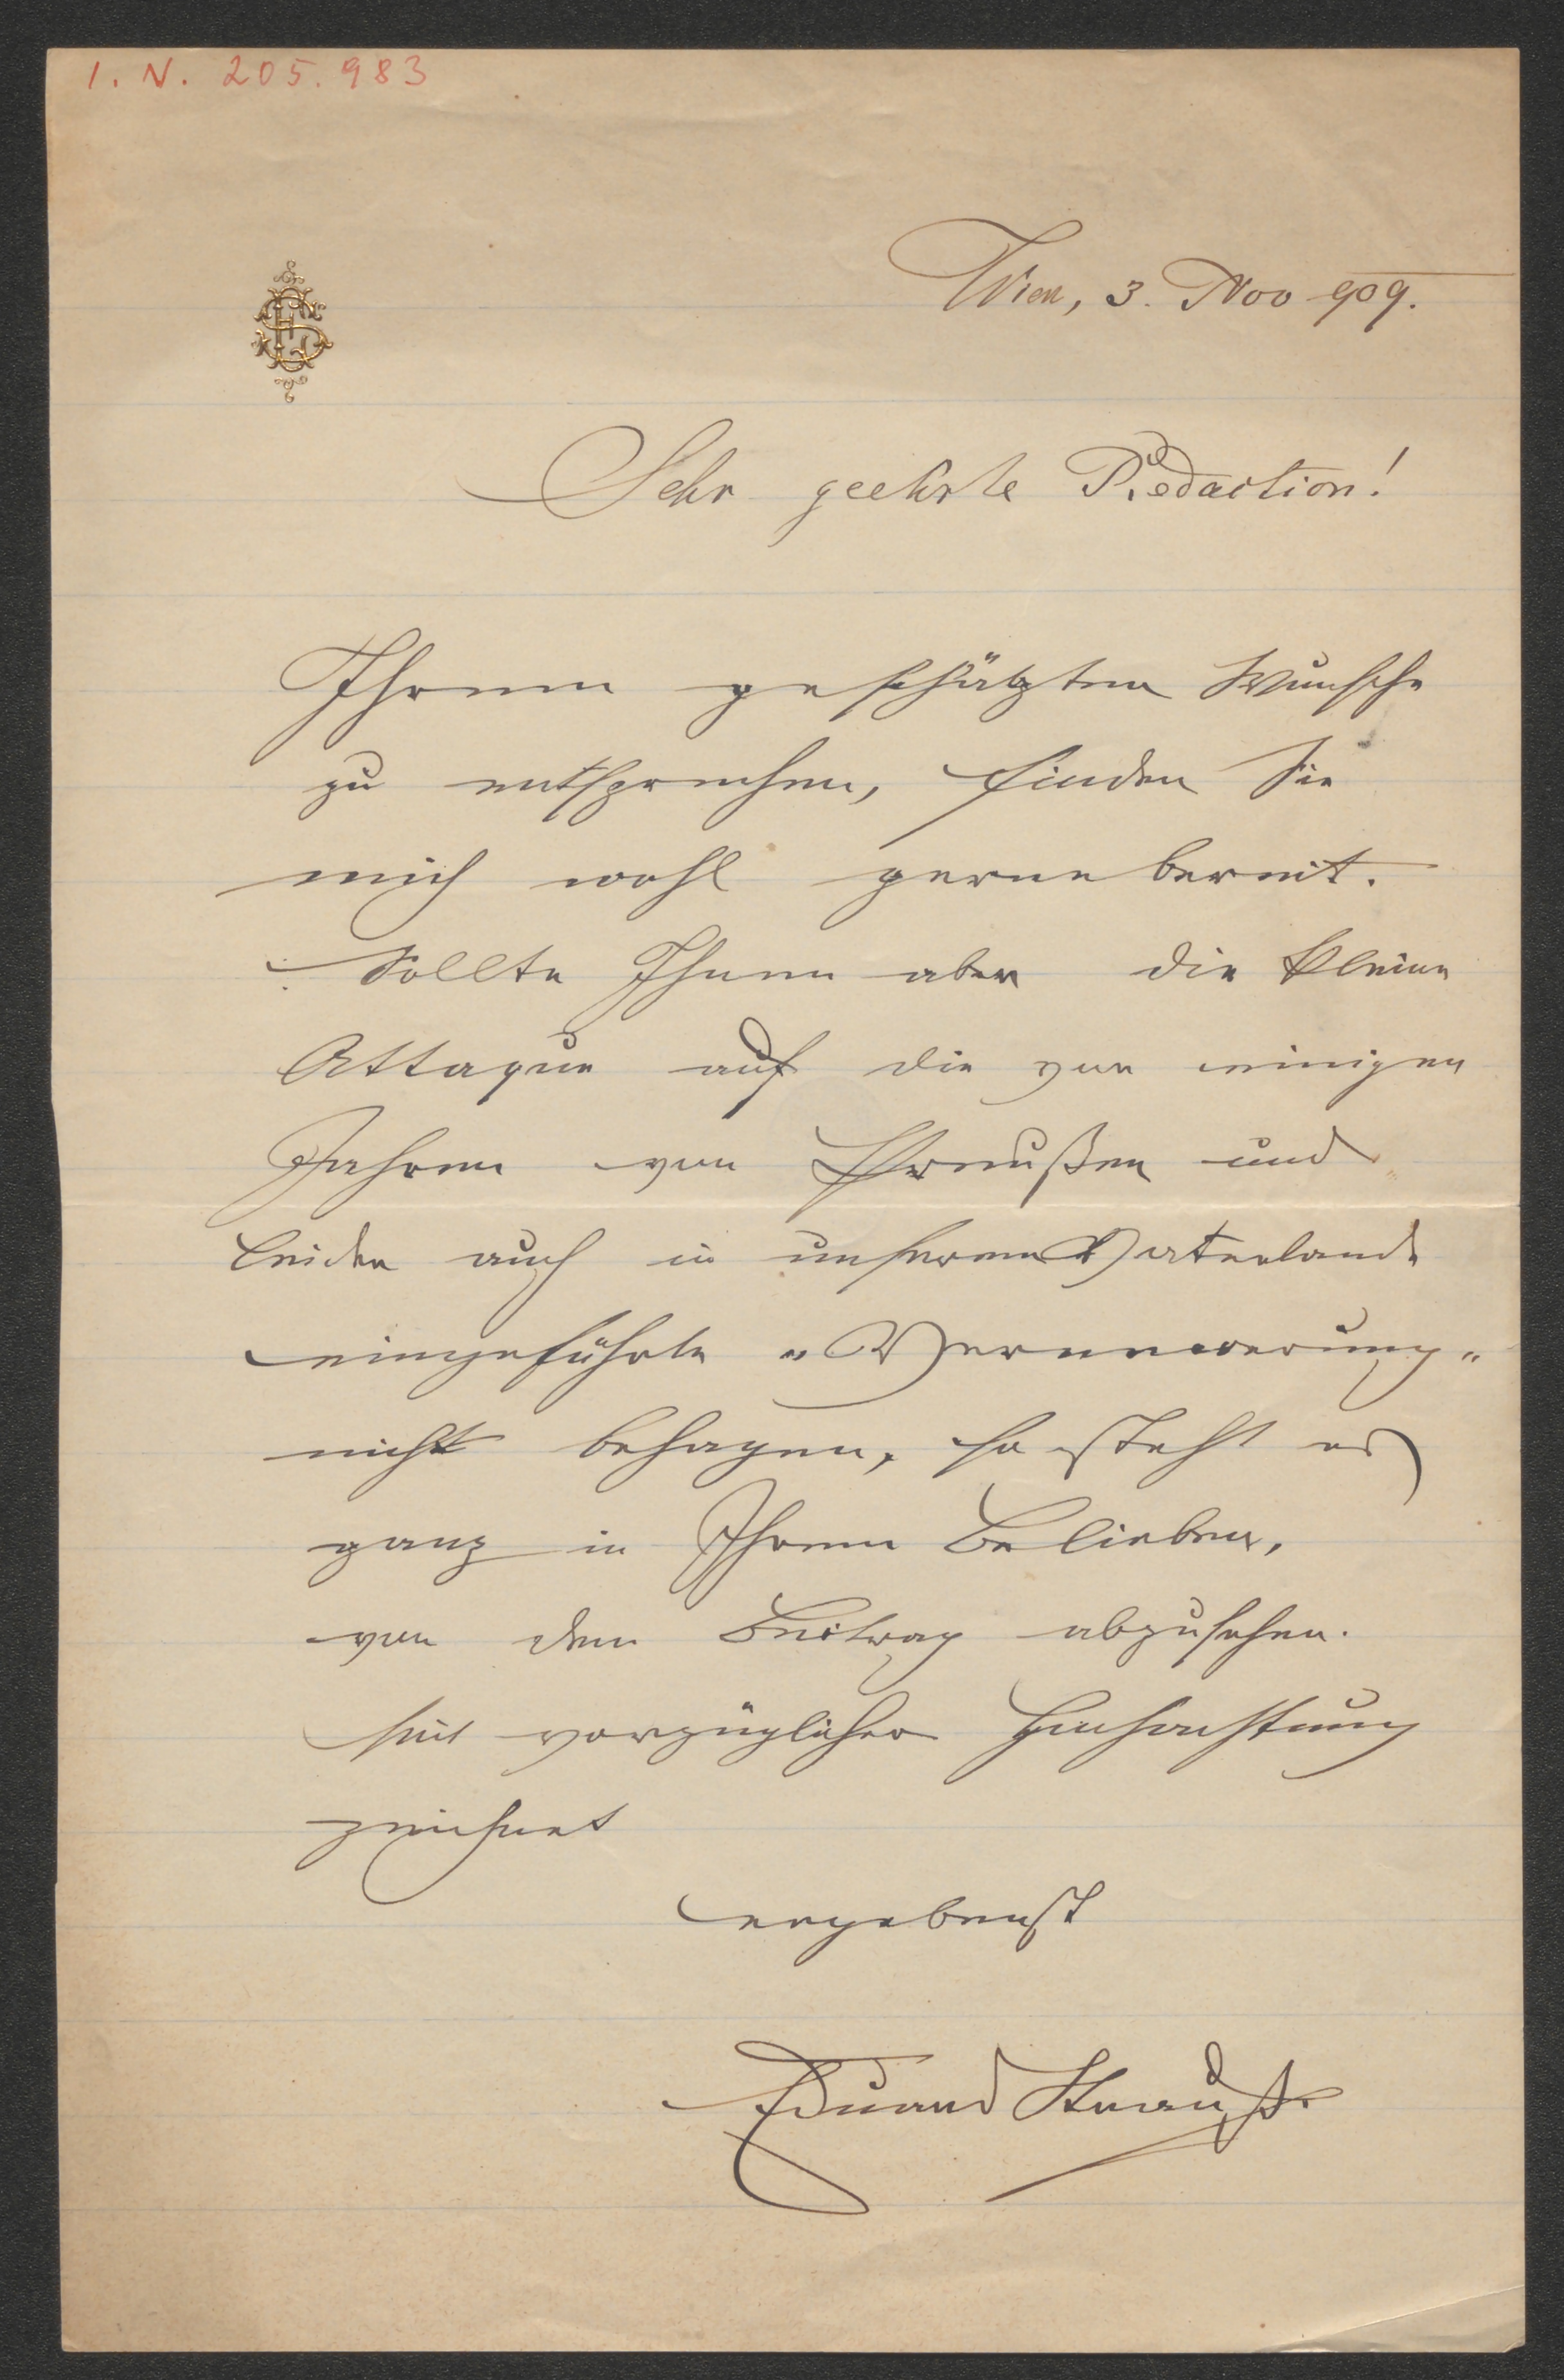 I. N. 205.983
Wien, 3. Nov 909.
Sehr geehrte Redaction!
Ihrem geschätzten Wunsche
zu entsprechen, finden Sie
mich wohl gerne bereit.
Sollte Ihnen aber die kleine
Attaque auf die vor einigen
Jahren von Preußen und
leider auch in unserem Vaterlande
eingeführte "
nicht behagen, so steht es
ganz in Ihrem Belieben,
von dem Beitrag abzusehen.
Mit vorzüglicher Hochachtung
zeichnet
ergebenst
Eduard Strauß